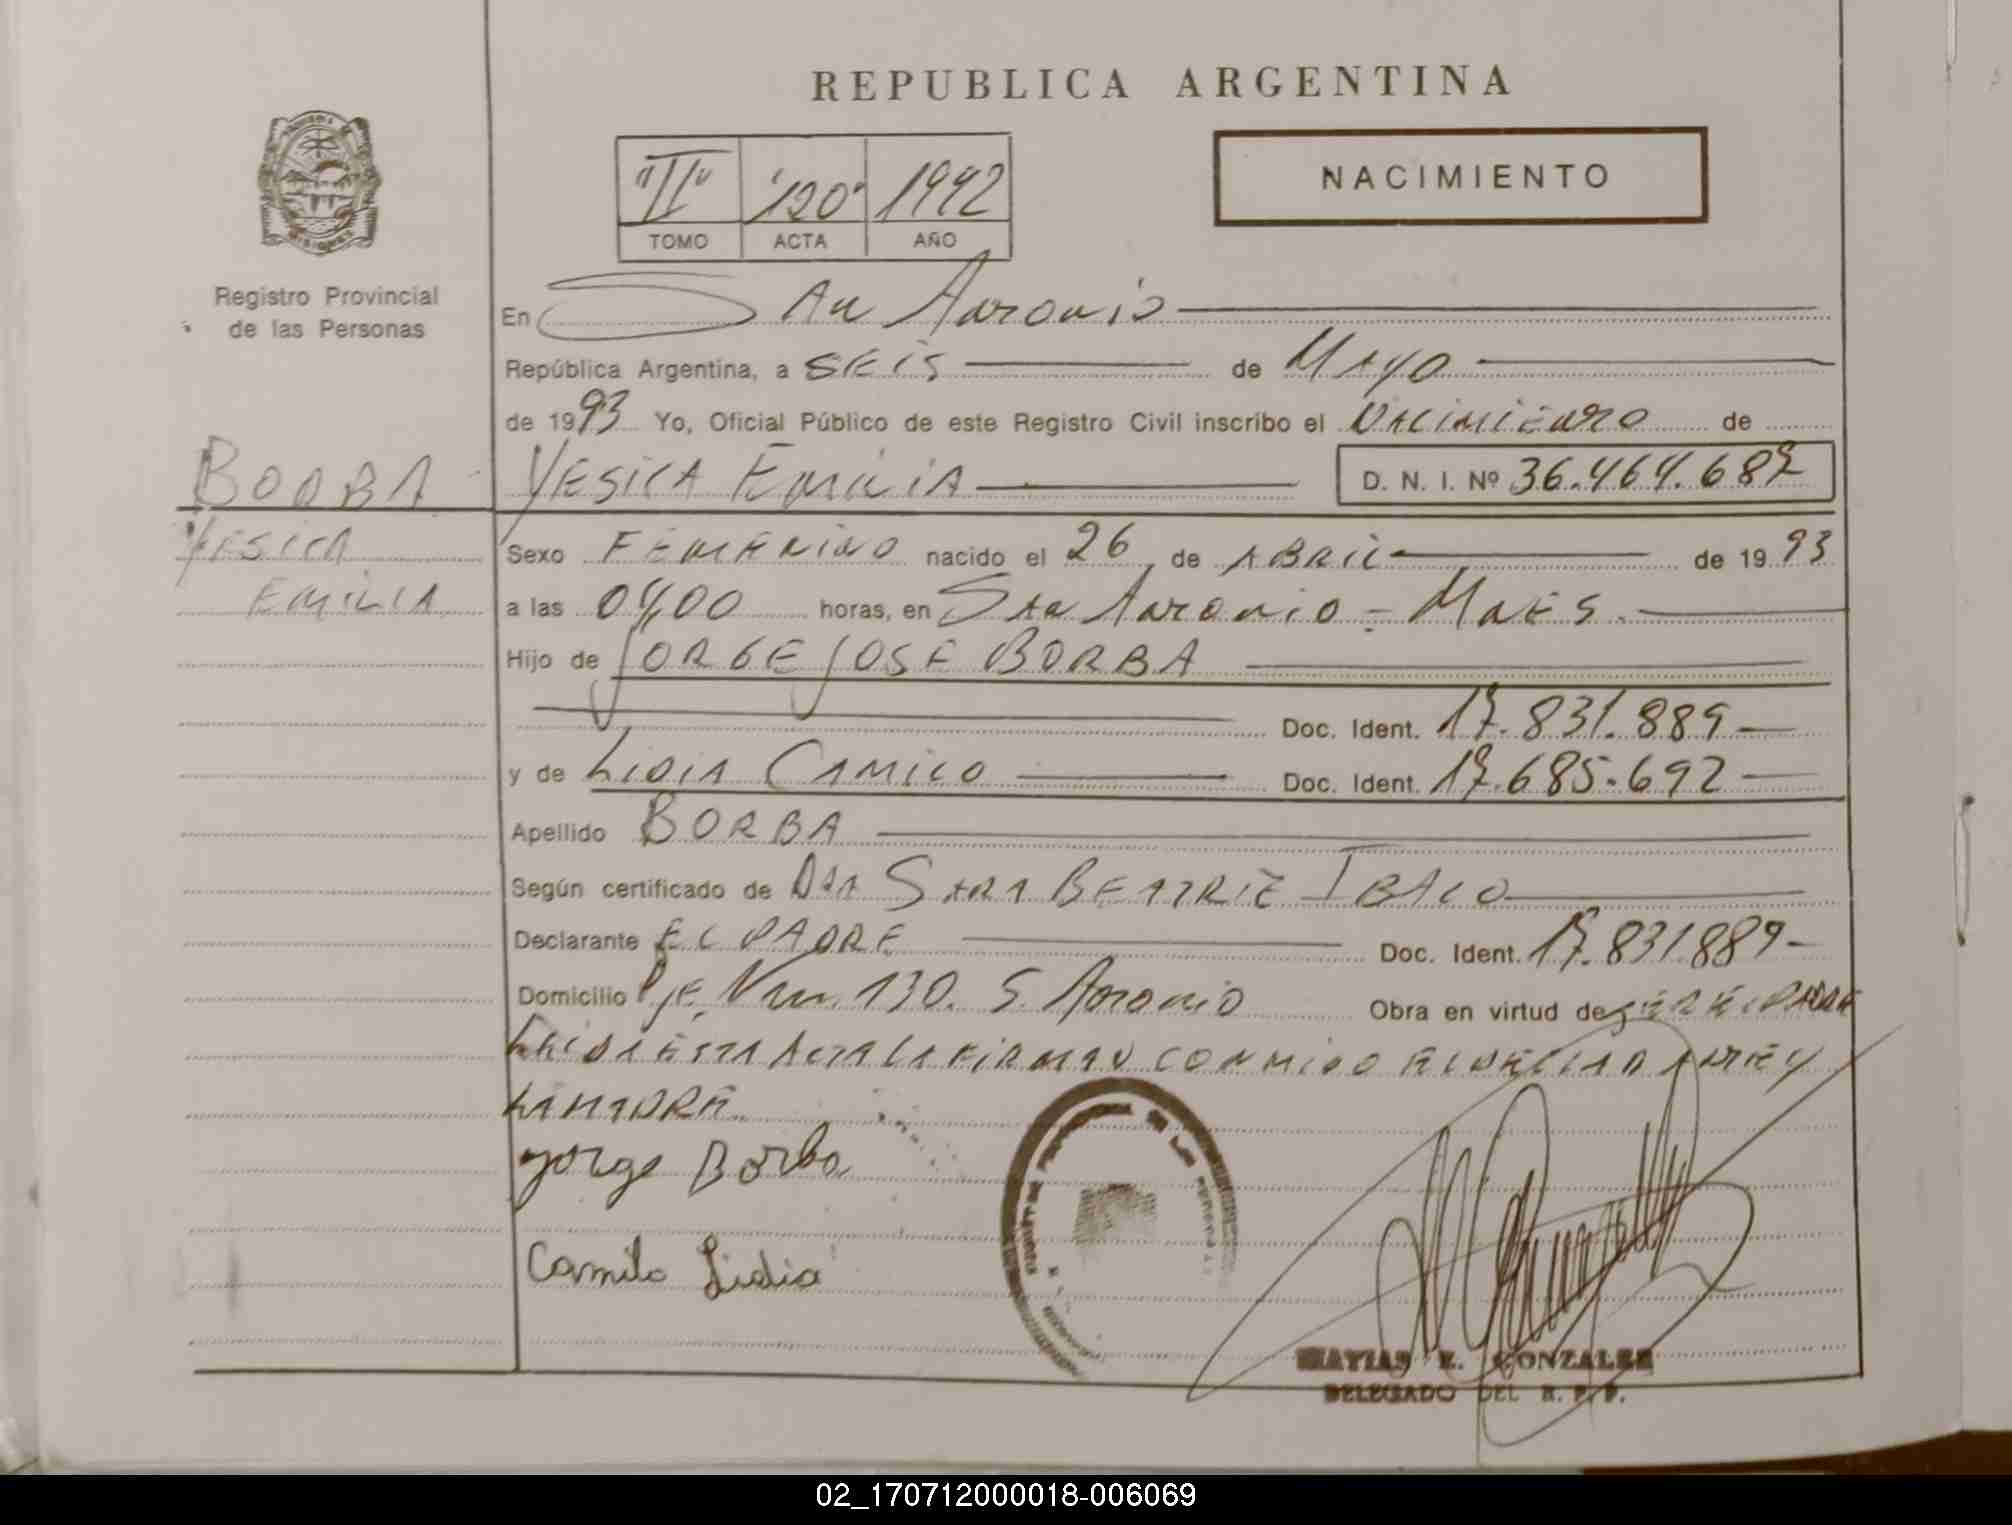 REPUBLICA ARGENTINA
"II" "120" 1992
TOMO ACTA AÑO
NACIMIENTO
Registro Provincial
de las Personas
En San Antonio
República Argentina, a SEIS de MAYO
de 1993 Yo, Oficial Público de este Registro Civil inscribo el NACIMIENTO de
BORBA
YESICA EMILIA
YESICA EMILIA D. N. I. Nº 36.464.687
Sexo FEMENINO nacido el 26 de ABRIL de 1993
a las 04,00 horas, en San Antonio - Mnes.
Hijo de JORGE JOSE BORBA
Doc. Ident. 17.831.889
y de LIDIA CAMILO Doc. Ident. 17.685.692
Apellido BORBA
Según certificado de DRA SARA BEATRIZ IBALO
Declarante EL PADRE Doc. Ident. 17.831.889
Domicilio Pje. 130. S. Antonio Obra en virtud de SER EL PADRE
LEIDA ESTA ACTA LA FIRMAN CONMIGO EL DECLARANTE Y
LA MADRE
Jorge Borba
Camilo Lidia
MATIAS E. GONZALEZ
DELEGADO DEL R. P. P.
02_170712000018-006069